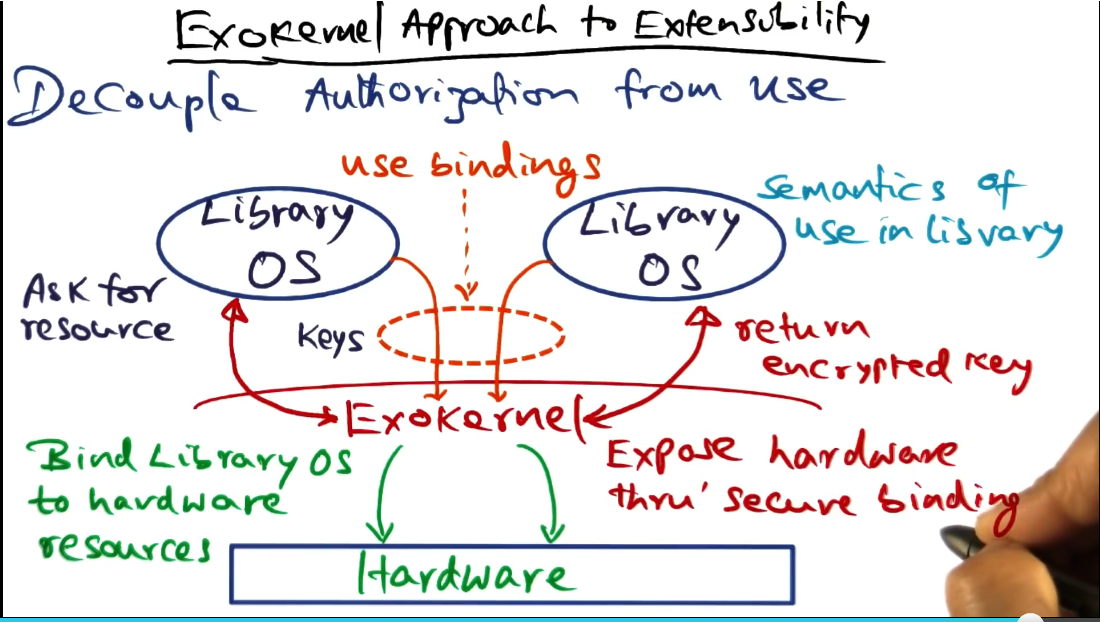 Exokernel Approach to Extensibility
Decouple Authorization from use
use bindings
Library
OS
Library
OS
Semantics of
use in Library
Ask for
resource
Keys
return
encrypted key
Exokernel
Bind Library OS
to hardware
resources
Expose hardware
thru' secure binding
Hardware